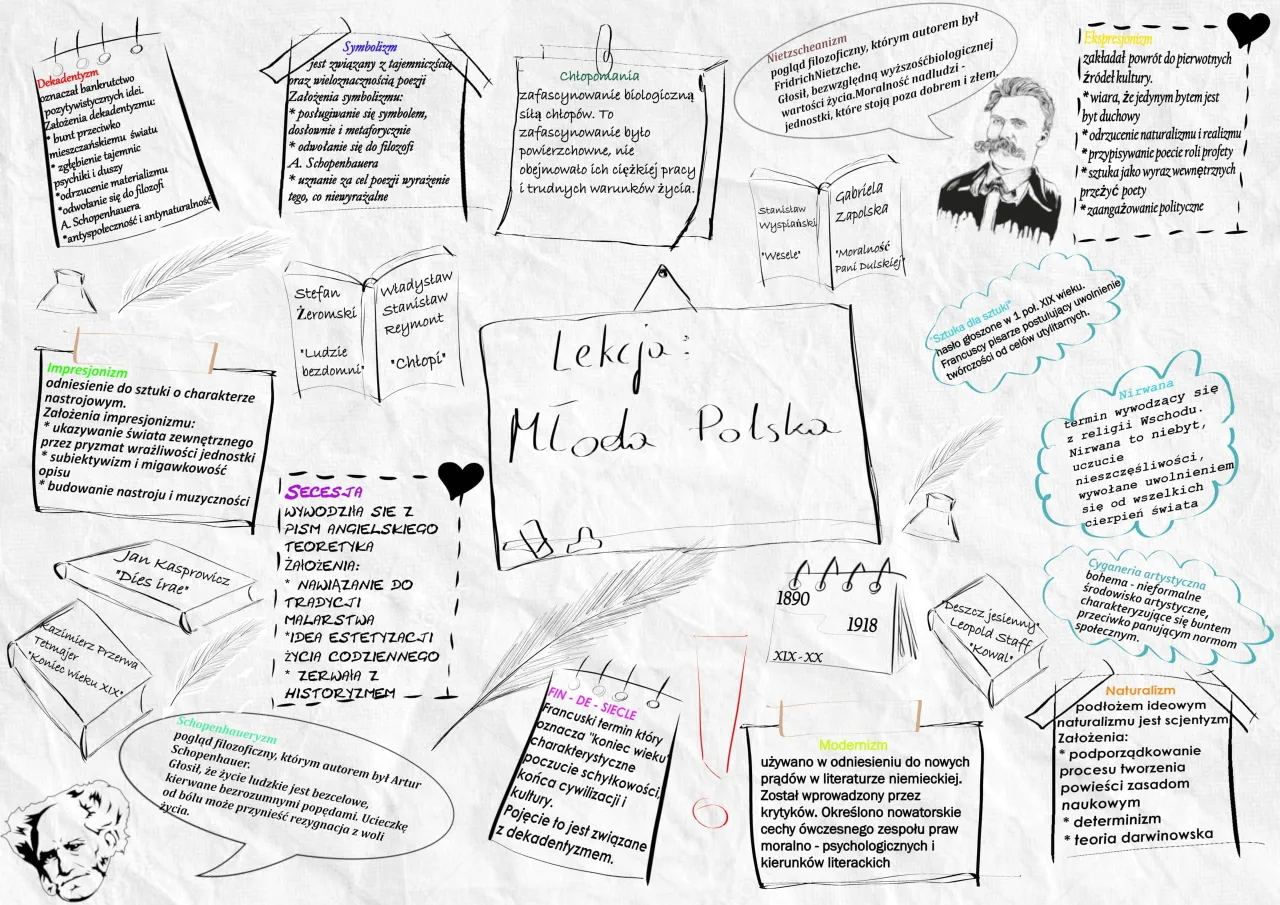 Dekadentyzm
oznaczał bankructwo
pozytywistycznych idei.
Założenia dekadentyzmu:
* bunt przeciwko
mieszczańskiemu światu
* zgłębienie tajemnic
psychiki i duszy
*odrzucenie materializmu
*odwołanie się do filozofi
A. Schopenhauera
*antyspołeczność i antynaturalność
Symbolizm
jest związany z tajemniczścią
oraz wieloznacznością poezji
Założenia symbolizmu:
* posługiwanie się symbolem,
dosłownie i metaforycznie
* odwołanie się do filozofi
A. Schopenhauera
* uznanie za cel poezji wyrażenie
tego, co niewyrażalne
Chłopomania
zafascynowanie biologiczną
siłą chłopów. To
zafascynowanie było
powierzchowne, nie
obejmowało ich ciężkiej pracy
i trudnych warunków życia.
Nietzscheanizm
pogląd filozoficzny, którym autorem był
FridrichNietzche.
Głosił, bezwględną wyższośćbiologicznej
wartości życia.Moralność nadludzi -
jednostki, które stoją poza dobrem i złem.
Ekspresjonizm
zakładał powrót do pierwotnych
źródeł kultury.
*wiara, że jedynym bytem jest
byt duchowy
*odrzucenie naturalizmu i realizmu
*przypisywanie poecie roli profety
*sztuka jako wyraz wewnętrznych
przeżyć poety
*zaangażowanie polityczne
Stanisław
Wyspiański
"Wesele"
Gabriela
Zapolska
"Moralność
Pani Dulskiej"
Stefan
Żeromski
"Ludzie
bezdomni"
Władysław
Stanisław
Reymont
"Chłopi"
Lekcja:
Młoda Polska
"Sztuka dla sztuki"
hasło głoszone w 1 poł. XIX wieku.
Francuscy pisarze postulujący uwolnienie
twórczości od celów utylitarnych.
Nirwana
termin wywodzący się
z religii Wschodu.
Nirwana to niebyt,
uczucie
nieszczęśliwości,
wywołane uwolnieniem
się od wszelkich
cierpień świata
Impresjonizm
odniesienie do sztuki o charakterze
nastrojowym.
Założenia impresjonizmu:
* ukazywanie świata zewnętrznego
przez pryzmat wrażliwości jednostki
* subiektywizm i migawkowość
opisu
* budowanie nastroju i muzyczności
Secesja
WYWODZIŁA SIE Z
PISM ANGIELSKIEGO
TEORETYKA
ZAŁOŻENIA:
* NAWIĄZANIE DO
TRADYCJI
MALARSTWA
*IDEA ESTETYZACJI
ŻYCIA CODZIENNEGO
* ZERWAŁA Z
HISTORYZMEM
Jan Kasprowicz
"Dies irae"
Kazimierz Przerwa
Tetmajer
"Koniec wieku XIX"
1890
1918
XIX - XX
Deszcz jesienny"
Leopold Staff
"Kowal"
Cyganeria artystyczna
bohema - nieformalne
środowisko artystyczne,
charakteryzujące się buntem
przeciwko panującym normom
społecznym.
Schopenhaueryzm
pogląd filozoficzny, którym autorem był Artur
Schopenhauer.
Głosił, że życie ludzkie jest bezcelowe,
kierwane bezrozumnymi popędami. Ucieczkę
od bólu może przynieść rezygnacja z woli
życia.
FIN - DE - SIECLE
Francuski termin który
oznacza "koniec wieku"
charakterystyczne
poczucie schyłkowości,
końca cywilizacji i
kultury.
Pojęcie to jest związane
z dekadentyzmem.
!
Modernizm
używano w odniesieniu do nowych
prądów w literaturze niemieckiej.
Został wprowadzony przez
krytyków. Określono nowatorskie
cechy ówczesnego zespołu praw
moralno - psychologicznych i
kierunków literackich
Naturalizm
podłożem ideowym
naturalizmu jest scjentyzm
Założenia:
* podporządkowanie
procesu tworzenia
powieści zasadom
naukowym
* determinizm
* teoria darwinowska